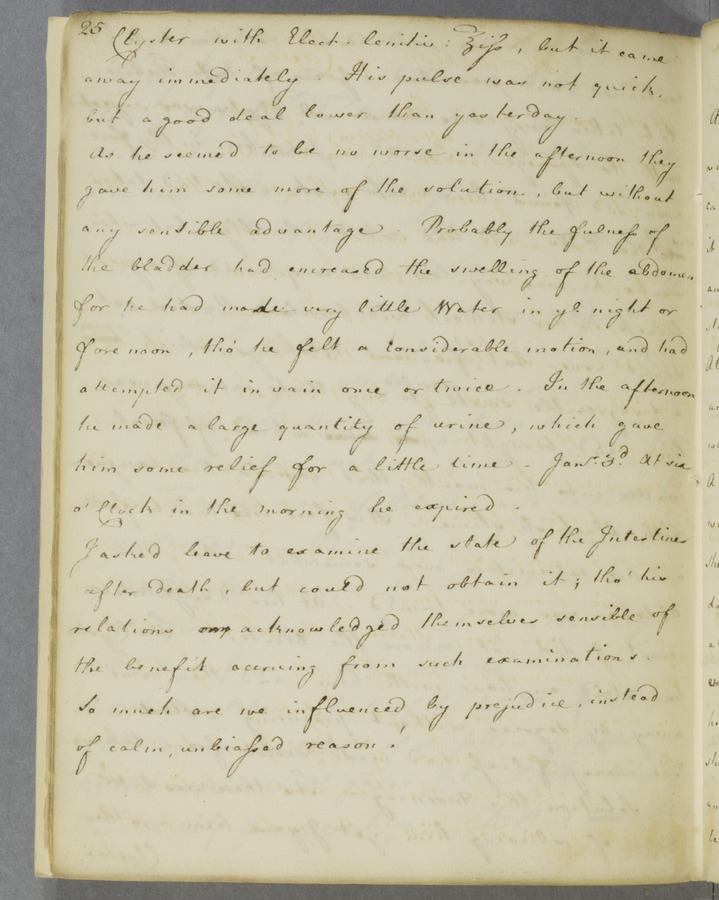 25
Clyster with Elect. lenitiv: ℥ijſs, but it came
away immediately. His pulse was not quick,
but a good deal lower than yesterday.
As he seemed to be no worse in the afternoon they
gave him some more of the solution, but without
any sensible advantage. Probably the fulneſs of
the bladder had encreased the swelling of the abdomen
for he had made very little Water in yᵉ night or
forenoon, tho' he felt a considerable motion, and had
attempted it in vain once or twice. In the afternoon
he made a large quantity of urine, which gave
him some relief for a little time. Janʸ. 3ᵈ. At six
o'Clock in the morning he expired.
I asked leave to examine the state of the Intestines
after death, but could not obtain it; tho' his
relations acknowledged themselves sensible of
the benefit accruing from such examinations.
So much are we influenced by prejudice, instead
of calm, unbiaſsed reason!